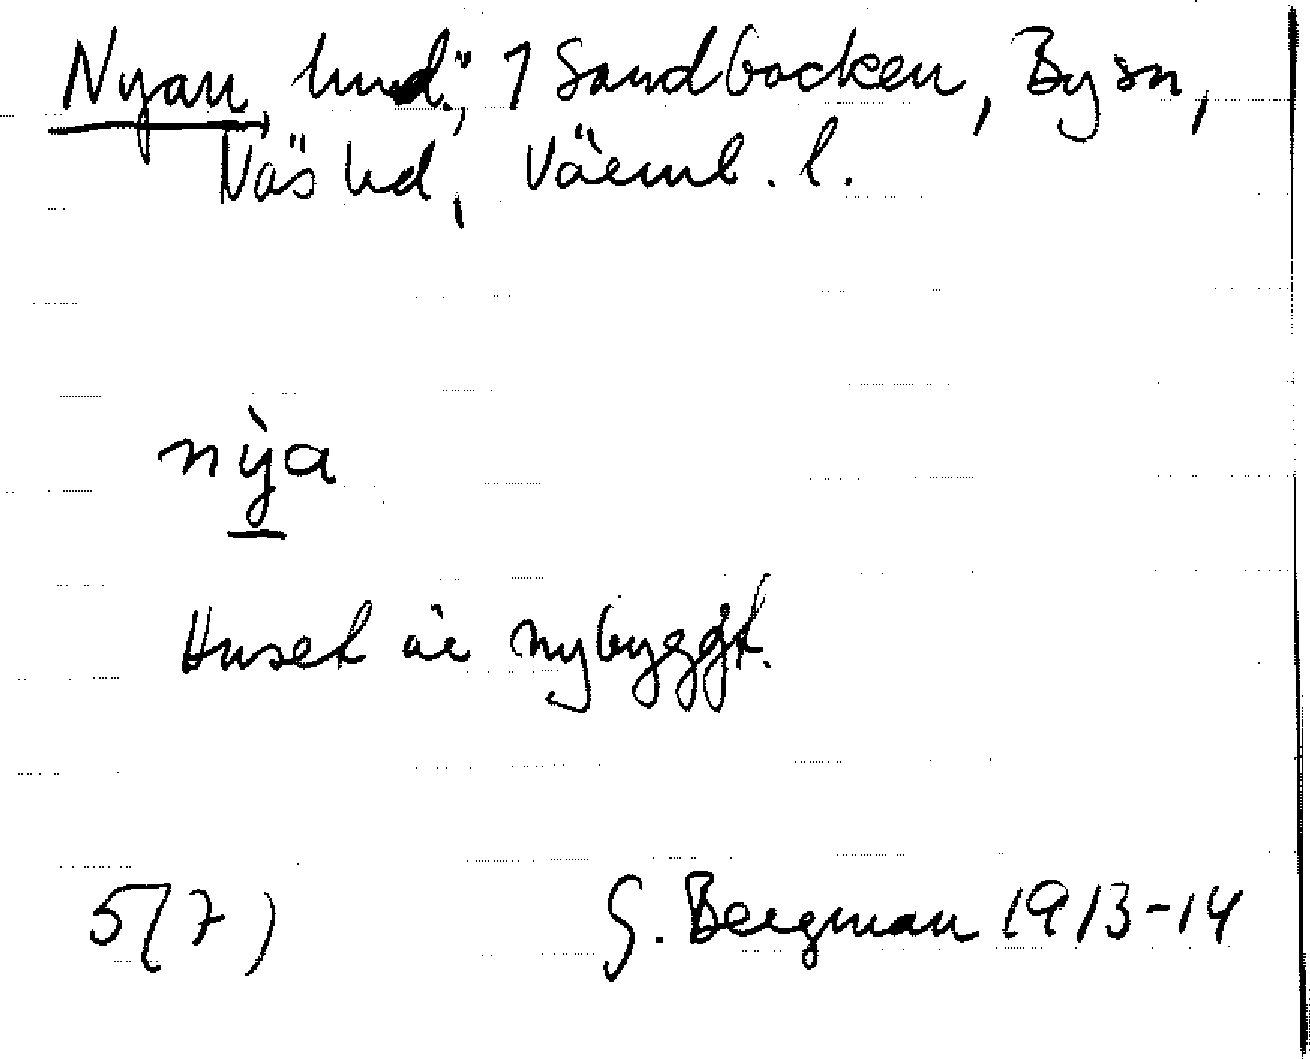 Nyan, lund", 1 Sandbocken, By sn,
Näs hd, Värml. l.
nỳa
Huset är nybyggt.
5(7) G. Bergman 1913-14